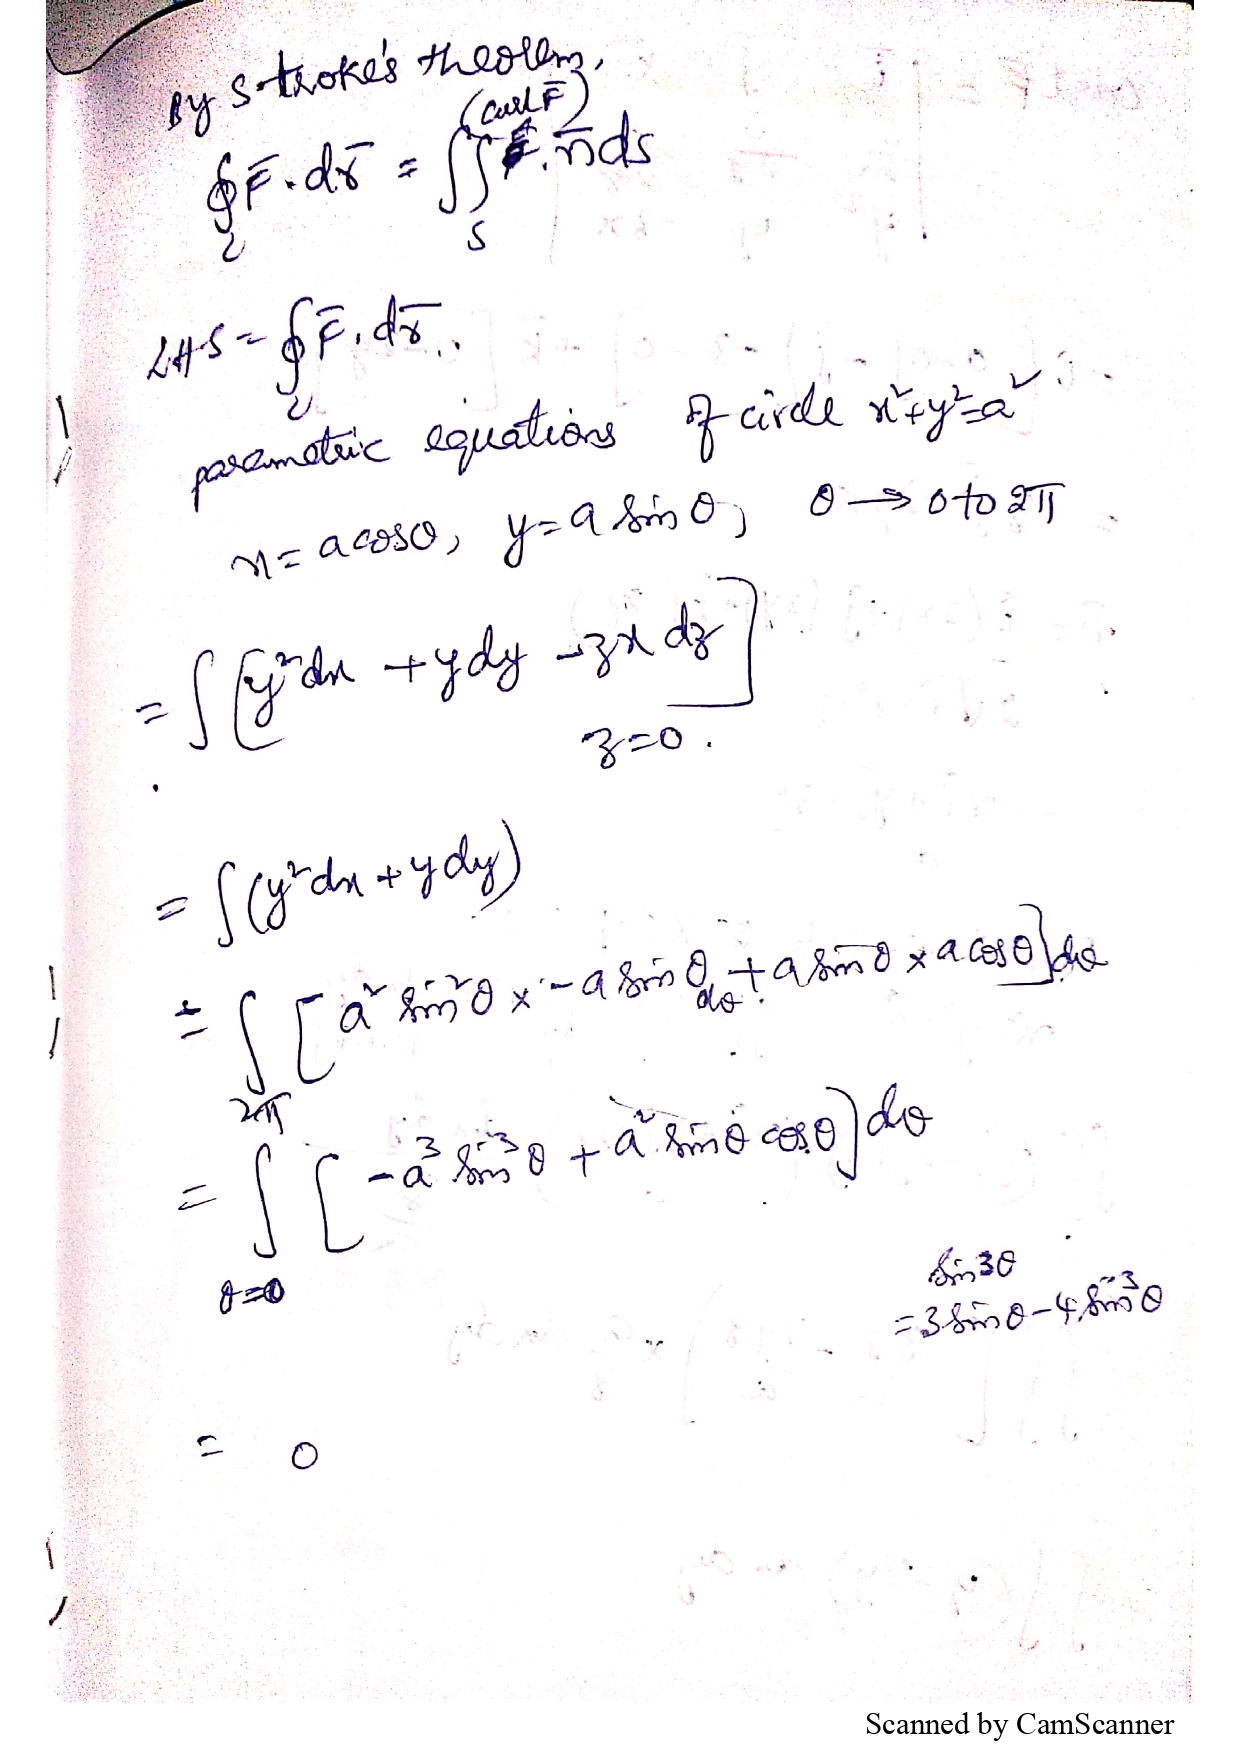 By Stroke's theorem,
∮_c F̄.dr̄ = ∬_S (curl F̄).n̄ ds
LHS = ∮_c F̄.dr̄.
parametric equations of circle x²+y²=a²
x = a cosθ, y = a sinθ, θ → 0 to 2π
= ∫[y²dx + ydy - zx dz]
z=0.
= ∫(y²dx + ydy)
= ∫[a² sin²θ × -a sinθ dθ + a sinθ × a cosθ]dθ
= ∫_{θ=0}^{2π} [-a³ sin³θ + a² sinθ cosθ]dθ
sin3θ
= 3 sinθ - 4 sin³θ
= 0
Scanned by CamScanner